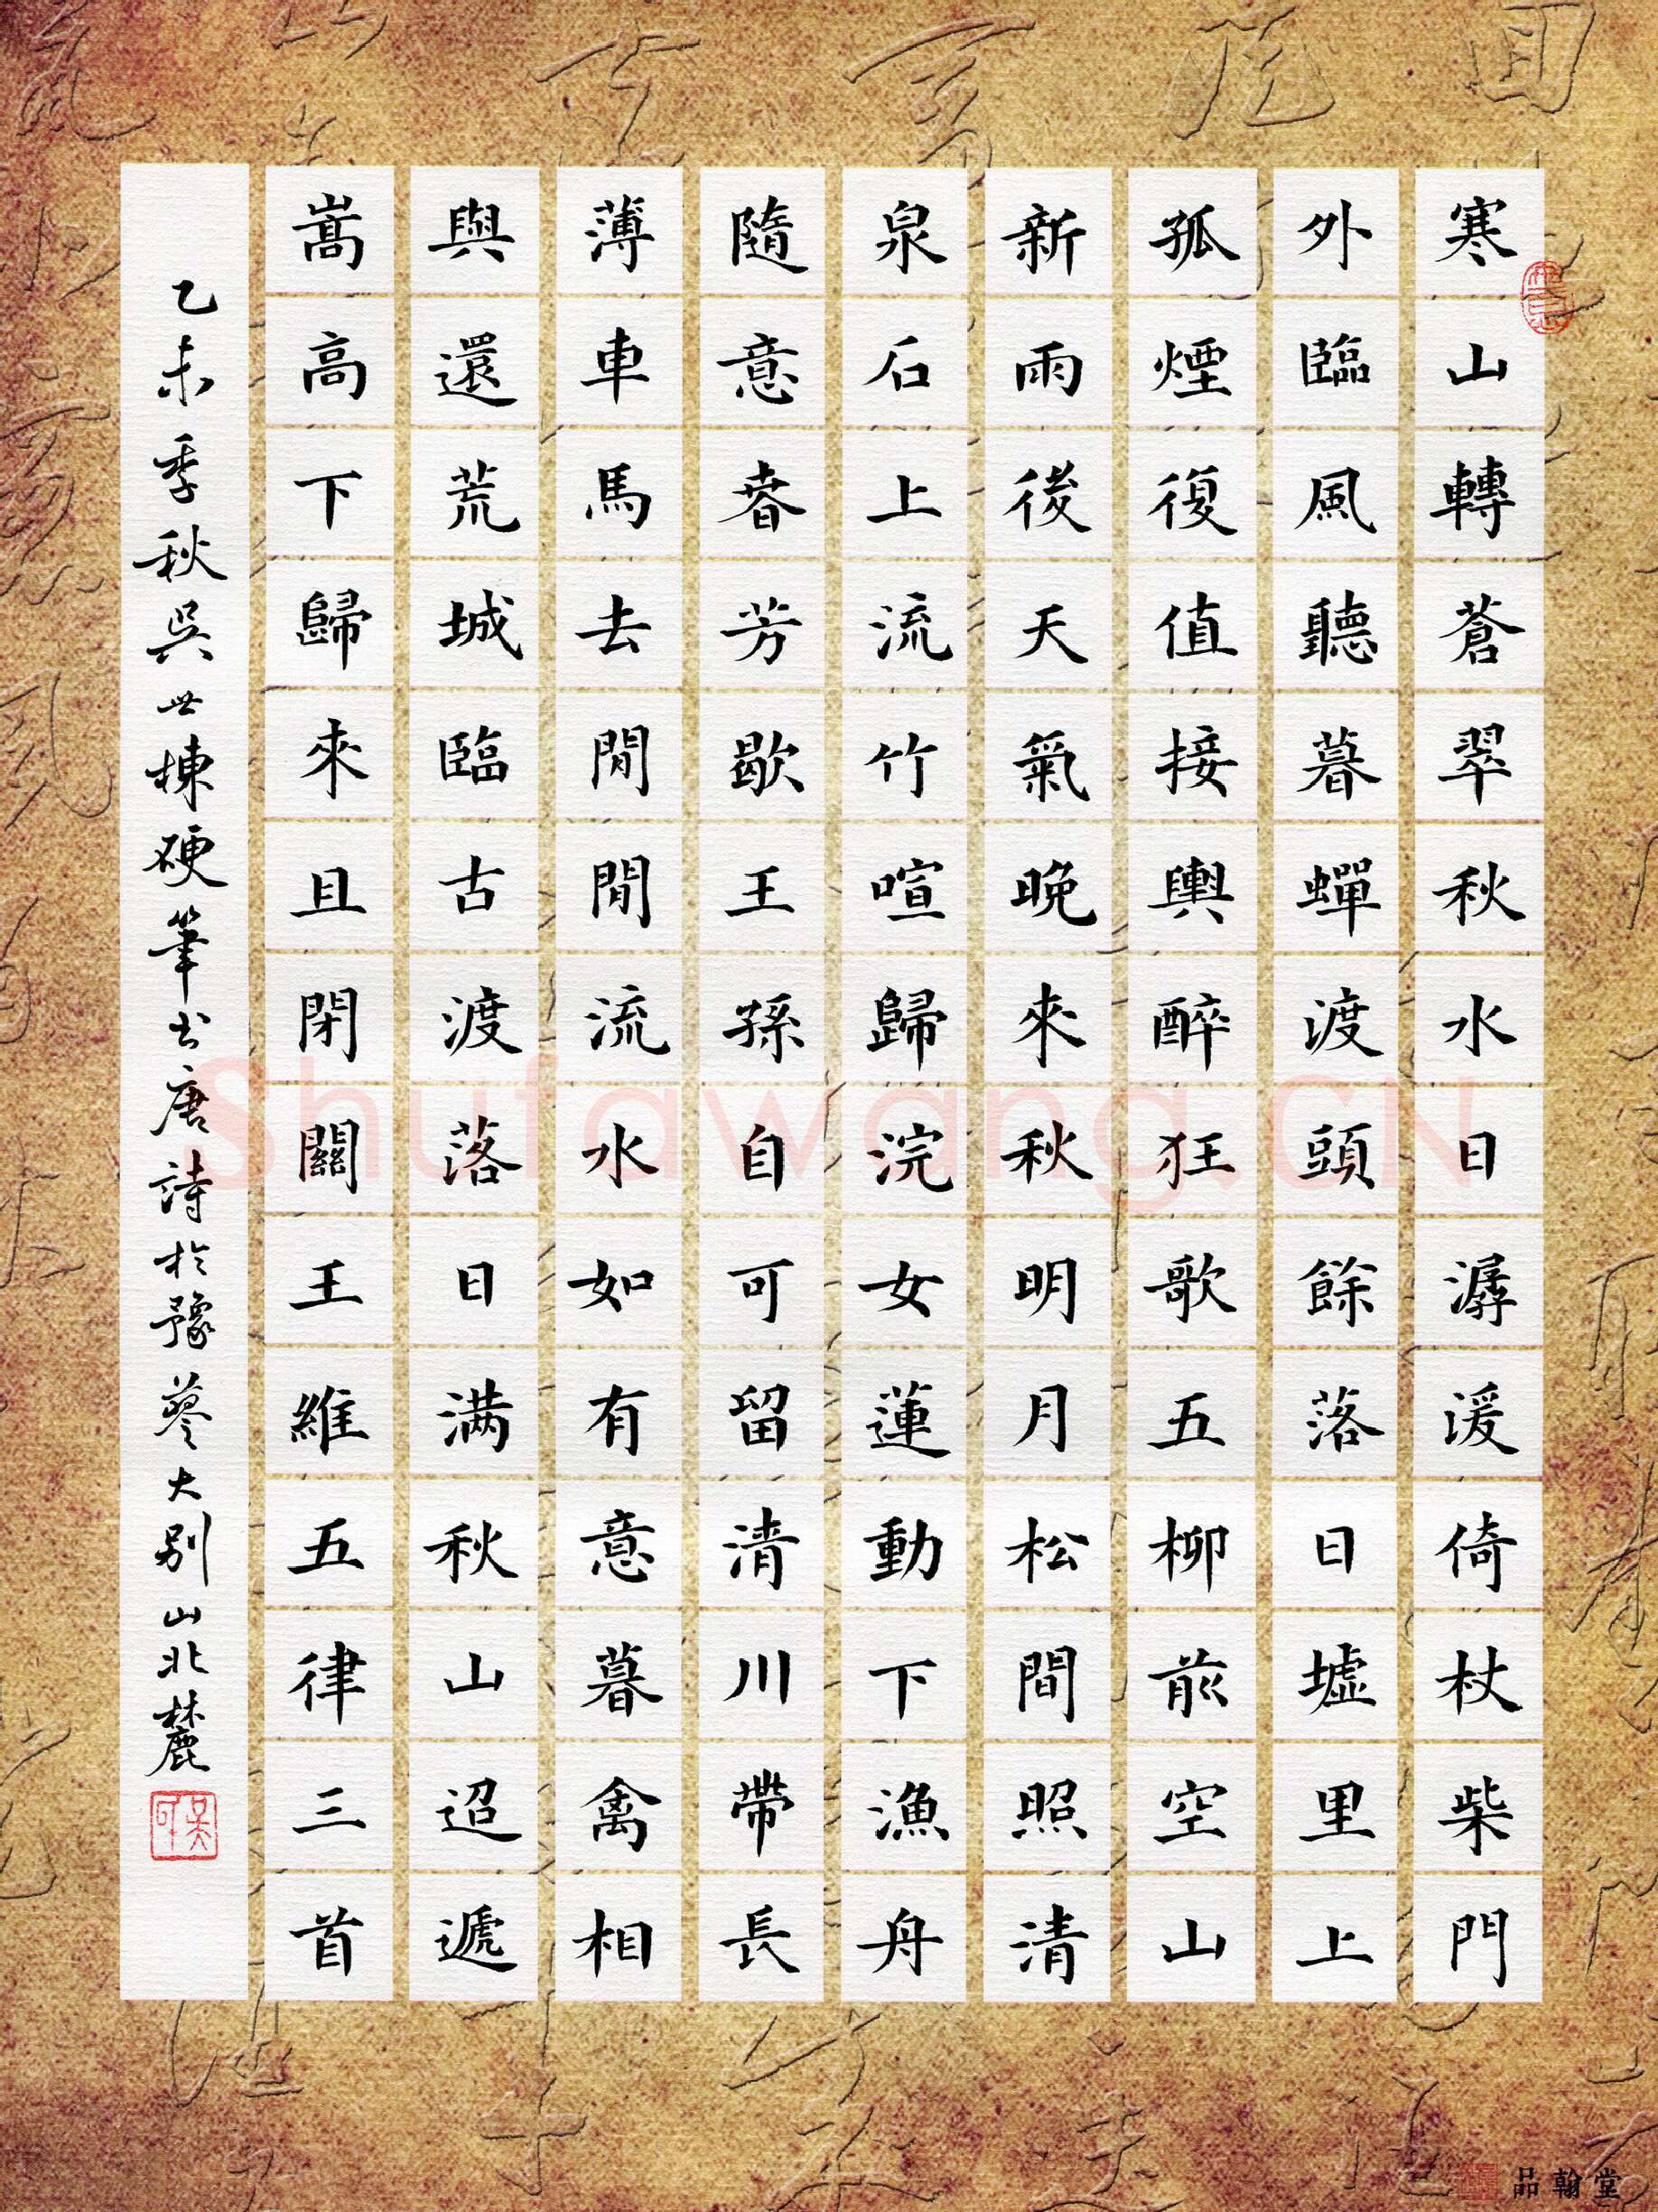 寒山轉蒼翠秋水日潺湲倚杖柴門
外臨風聽暮蟬渡頭餘落日墟里上
孤煙復值接輿醉狂歌五柳前空山
新雨後天氣晚來秋明月松間照清
泉石上流竹喧歸浣女蓮動下漁舟
隨意春芳歇王孫自可留清川帶長
薄車馬去閒閒流水如有意暮禽相
與還荒城臨古渡落日满秋山迢遞
嵩高下歸來且閉關王維五律三首
乙未季秋吳世棟硬筆书唐詩於豫蓼大别山北麓
Shufawang.CN
品翰堂